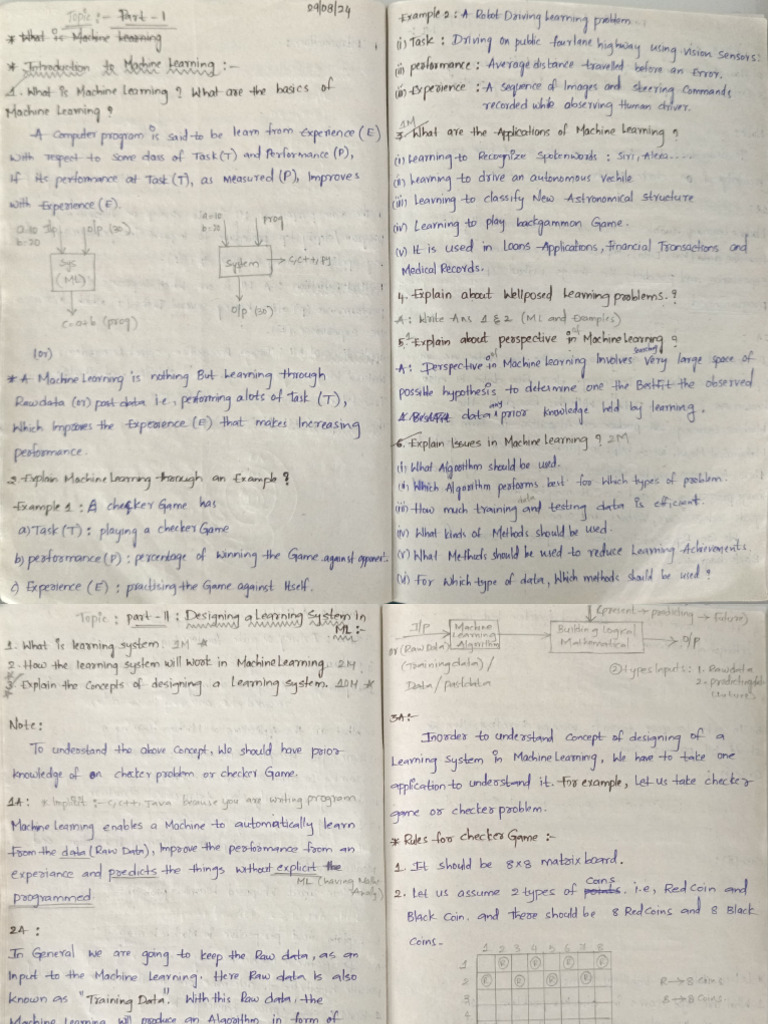 Topic :- Part - 1
09/08/24
* What is Machine Learning
* Introduction to Machine Learning :-
1. What is Machine Learning ? What are the basics of
Machine Learning ?
A Computer program is said to be learn from Experience (E)
With respect to Some class of Task (T) and Performance (P),
If its performance at Task (T), as Measured (P), Improves
with Experience (E).
a=10 I/p
b=20
O/p (30)
Sys
(ML)
c=a+b (prog)
a=10
b=20
prog
System
c, c++, py
O/p (30)
(or)
* A Machine Learning is nothing But Learning through
Rawdata (or) past data i.e, performing alots of Task (T),
Which Improves the Experience (E) that makes Increasing
performance.
2 Explain Machine Learning through an Example ?
Example 1 : A checker Game has
a) Task (T) : playing a checker Game
b) performance (P) : percentage of winning the Game against opponent.
c) Experience (E) : practising the Game against Itself.
Example 2 : A Robot Driving Learning problem.
(i) Task : Driving on public fourlane highway using vision Sensors.
(ii) performance : Average distance travelled before an Error.
(iii) Experience : A sequence of Images and steering Commands
recorded while observing Human driver.
1M
3. What are the Applications of Machine Learning ?
(i) Learning to Recognize Spoken words : Siri, Alexa....
(ii) Learning to drive an autonomous vechile
(iii) Learning to classify New Astronomical structure
(iv) Learning to play backgammon Game.
(v) It is used in Loans Applications, Financial Transactions and
Medical Records.
4. Explain about Wellposed Learning problems. ?
A : Write Ans 1 & 2 (ML and Examples)
5. Explain about perspective in of Machine Learning ?
A : Perspective in of Machine Learning Involves Searching Very large space of
possible hypothesis to determine one the Best Fit the observed
data any prior knowledge held by learning.
6. Explain Issues in Machine Learning ? 2M
(i) What Algorithm should be used.
(ii) Which Algorithm performs best for which types of problem.
(iii) How much training data and testing data is efficient.
(iv) What kinds of Methods should be used.
(v) What Methods should be used to reduce Learning Achievements.
(vi) For which type of data, Which methods should be used ?
Topic : part - II : Designing a Learning System in
ML :-
1. What is learning system. 1M *
2. How the learning system will work in Machine Learning. 2M
3. Explain the Concepts of designing a Learning system. 10M *
Note :
To understand the above Concept, We should have prior
knowledge of on checker problem or checker Game.
1A : * Implicit :- C, C++, Java because you are writing program.
Machine Learning enables a Machine to automatically learn
from the data (Raw Data), Improve the performance from an
experiance and predicts the things without explicit the
ML (having
programmed.
2A :
In General we are going to keep the Raw data, as an
Input to the Machine Learning. Here Raw data is also
known as "Training Data". With this Raw data, the
Machine Learning will produce an Algorithm in form of
(present → predicting → future)
I/P
or (Raw Data)
(Training data) /
Data / pastdata
Machine
Learning
Algorithm
Building Logical
Mathematical
O/P
2 Types Inputs : 1. Rawdata
2. predicting
(future)
3A :-
Inorder to understand concept of designing of a
Learning System in Machine Learning, We have to take one
application to understand it. For example, Let us take checker
game or checker problem.
* Rules for checker Game :-
1. It should be 8x8 matrix board.
2. Let us assume 2 types of points Coins. i.e, Red Coin and
Black Coin. and there should be 8 Red Coins and 8 Black
Coins.
1 2 3 4 5 6 7 8
1 R R R R
2 R R R R
3
4
R → 8 Coins
B → 8 Coins